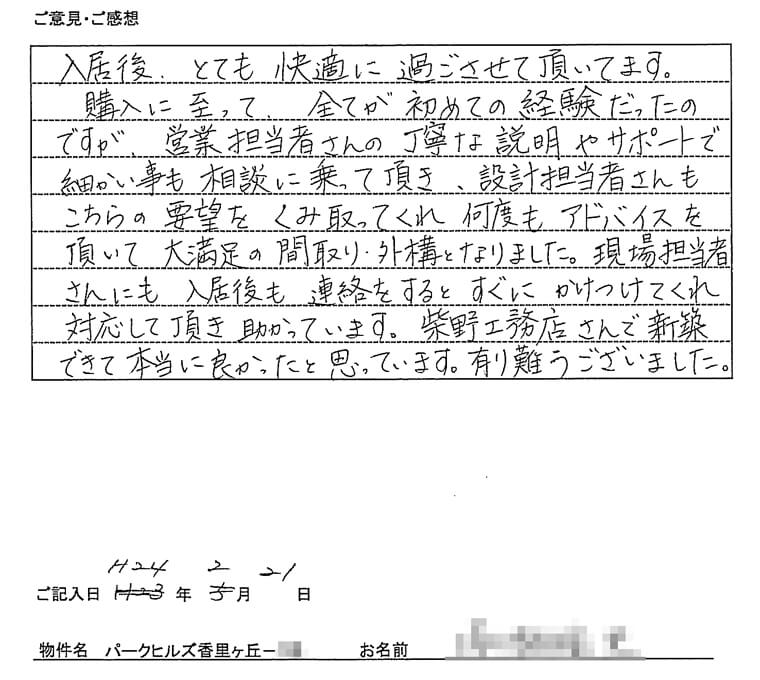 ご意見・ご感想
入居後、とても快適に過ごさせて頂いてます。
購入に至って、全てが初めての経験だったの
ですが、営業担当者さんの丁寧な説明やサポートで
細かい事も相談に乗って頂き、設計担当者さんも
こちらの要望をくみ取ってくれ何度もアドバイスを
頂いて大満足の間取り・外構となりました。現場担当者
さんにも入居後も連絡をするとすぐにかけつけてくれ
対応して頂き助かっています。柴野工務店さんで新築
できて本当に良かったと思っています。有り難うございました。
H24 2 21
ご記入日 H23 年 5月 日
物件名 パークヒルズ香里ヶ丘ー お名前